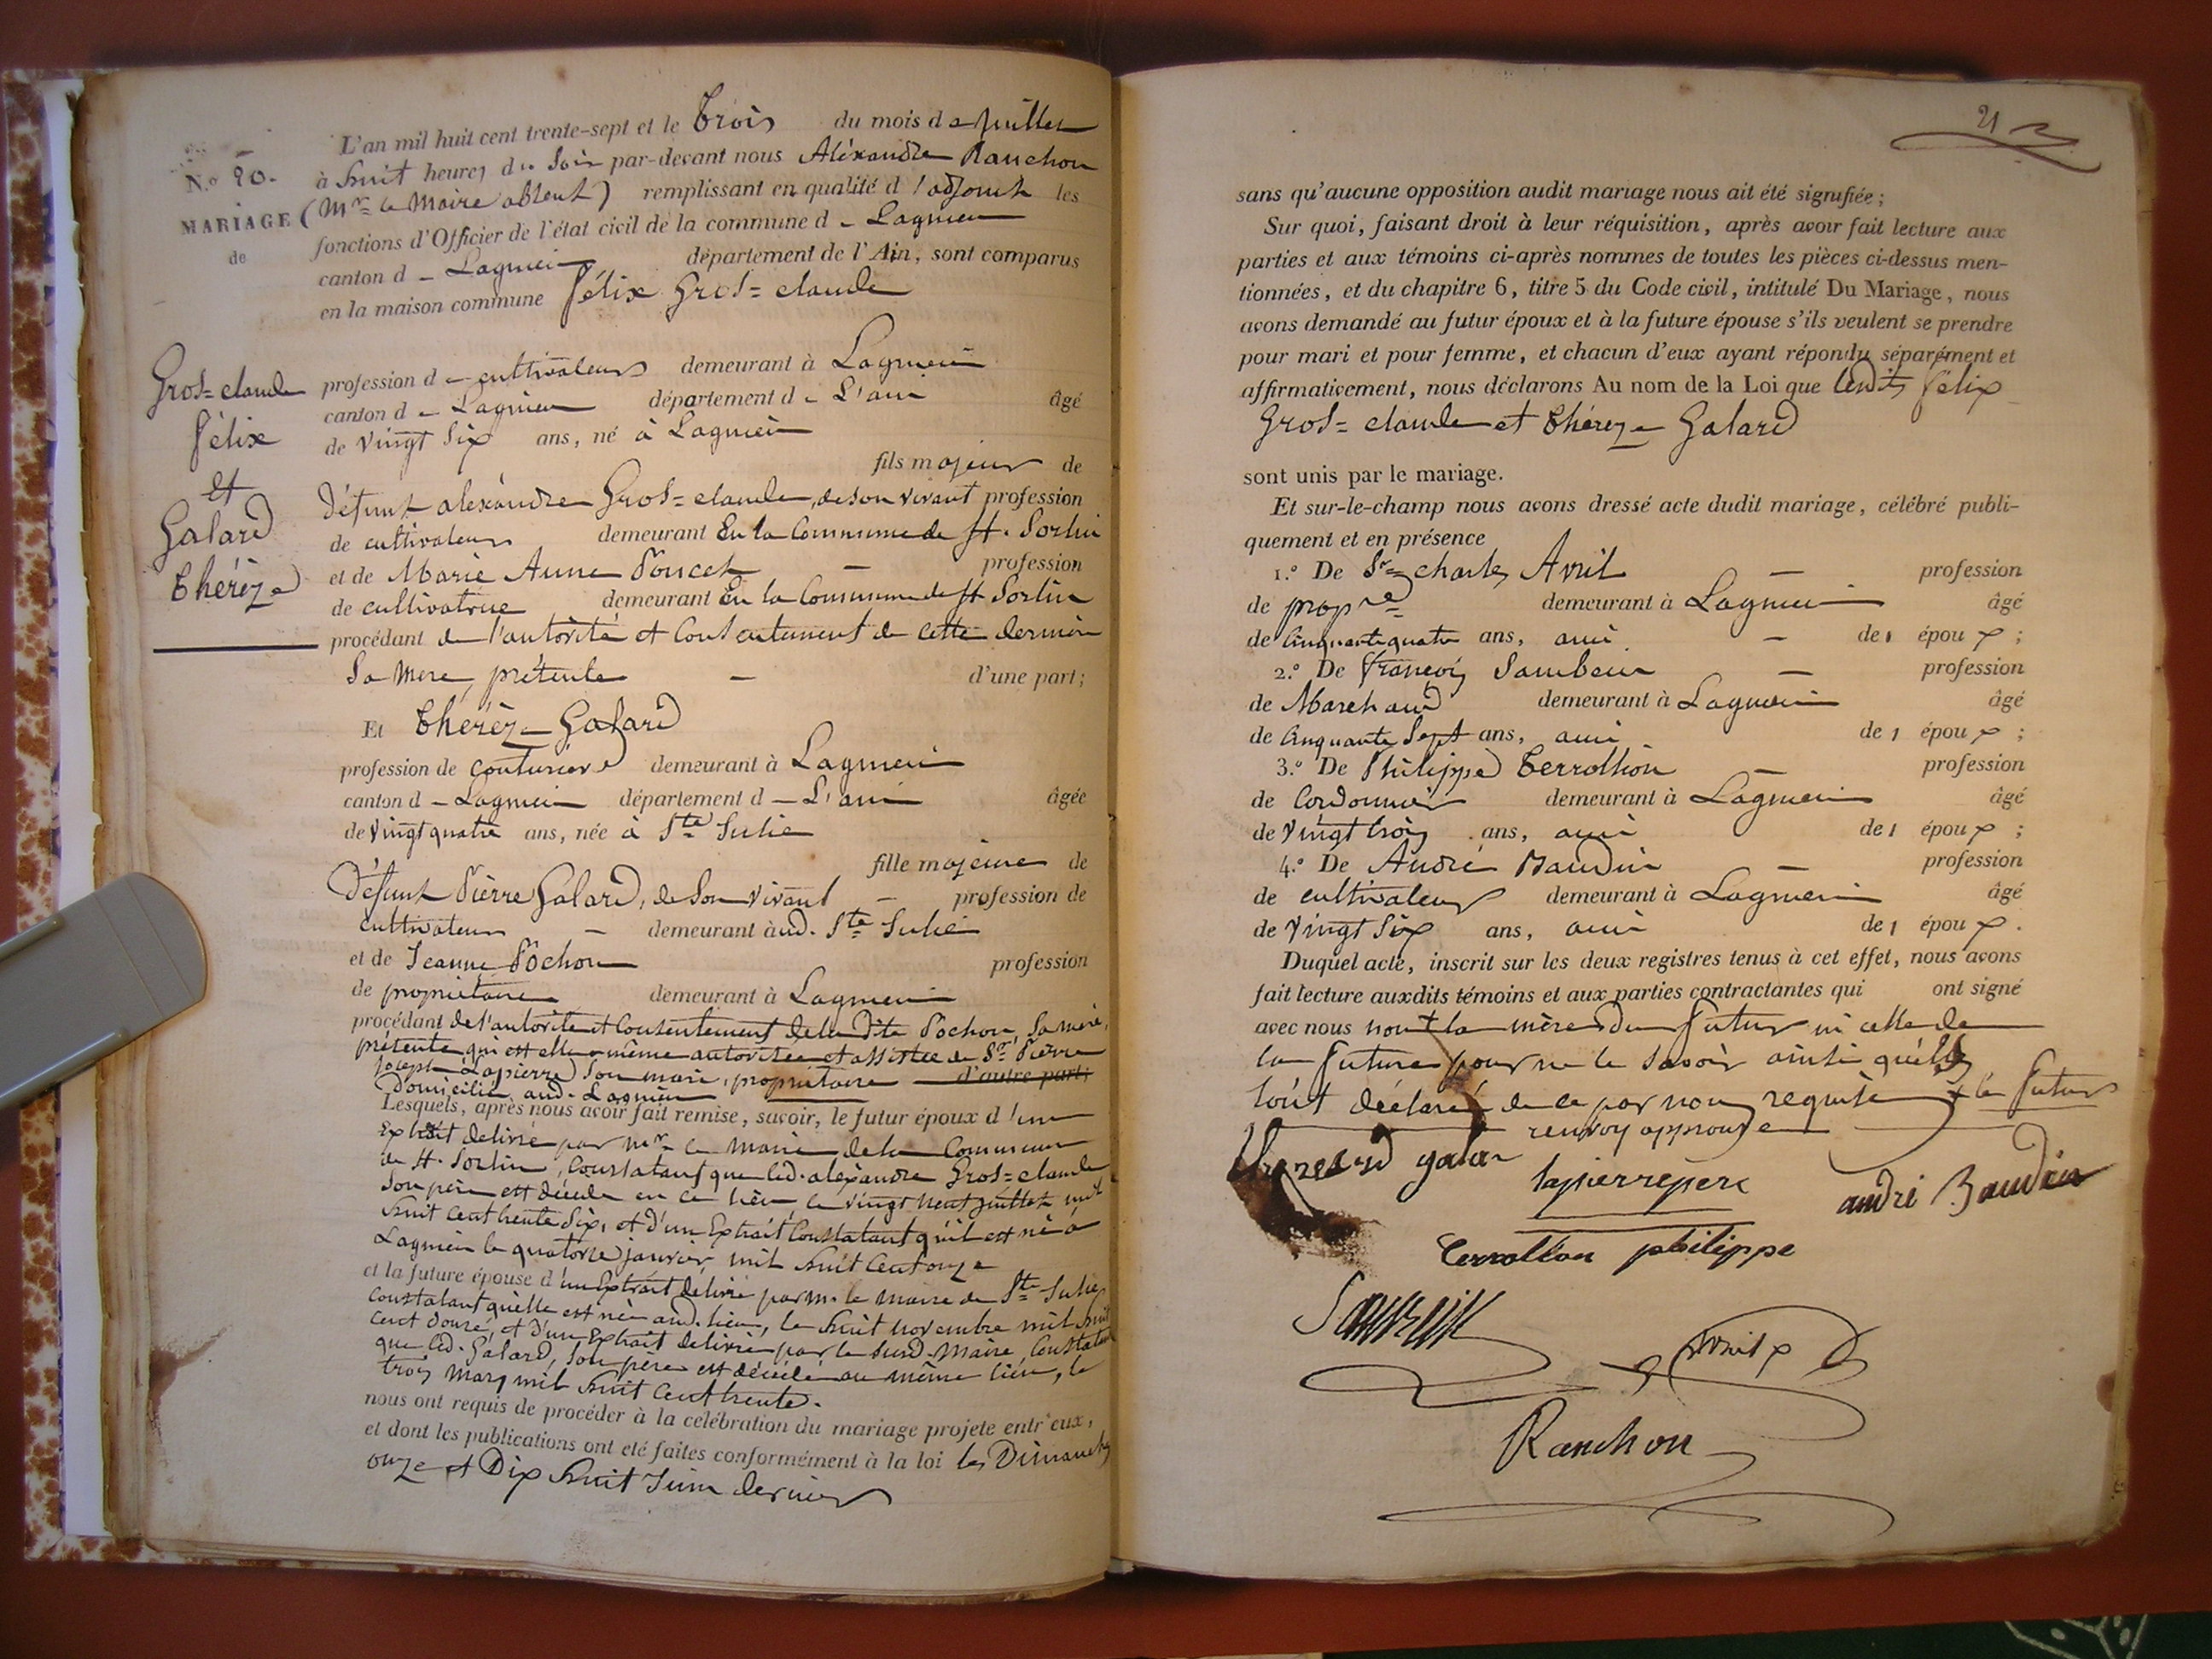 L'an mil huit cent trente-sept et le trois du mois de juillet
N.º 20. à huit heures du soir par-devant nous Aléxandre Ranchon
(Mr le Maire absent) remplissant en qualité d'adjoint les
MARIAGE fonctions d'Officier de l'état civil de la commune d - Lagnieu
de canton d - Lagnieu département de l'Ain, sont comparus
en la maison commune félix Gros=claude
Gros=claude
félix
et
Galard
thérèze
profession de cultivateur demeurant à Lagnieu
canton de Lagnieu département d - L'ain âgé
de vingt six ans, né à Lagnieu
fils majeur de
défunt alexandre Gros=claude, de son vivant profession
de cultivateur demeurant En la Commune de St. Sorlin
et de Marie Anne Poncet — profession
de cultivatrice demeurant En la Commune de St Sorlin
procédant de l'autorité et Consentement de cette dernière
Sa Mere, présente — d'une part;
Et thérèze Galard
profession de couturiere demeurant à Lagnieu
canton d - Lagnieu département d - L'ain âgée
de vingt quatre ans, née à Ste Julie
fille majeure de
défunt Pierre Galard, de Son vivant — profession de
cultivateur — demeurant àud. Ste Julie
et de Jeanne Pochon profession
de propriétaire demeurant à Lagnieu
procédant de l'autorité et Consentement de la dite Pochon, Sa mère,
présente qui est elle-même autorisée et assistée de Sr Pierre
Joseph Lapierre Son mari, propriétaire d'autre part;
Domicilié aud. Lagnieu
Lesquels, après nous avoir fait remise, savoir, le futur époux d'un
Extrait delivré par Mr le Maire de la Commune
de St. Sorlin, Constatant que led. alexandre Gros=claude
Son père est décédé en ce lieu, le vingt neuf juillet mil
huit cent trente Six, et d'un Extrait Constatant qu'il est né à
Lagnieu le quatorze janvier mil huit Cent onze
et la future épouse d'un Extrait delivré par m. le maire de Ste Julie
Constatant quèlle est née aud. lieu, le huit novembre mil huit
cent douze, et d'un Extrait delivré par le susd. Maire, Constatant
que led. Galard, Son père est décédé au même lieu, le
trois mars mil huit Cent trente.
nous ont requis de procéder à la célébration du mariage projeté entr'eux,
et dont les publications ont été faites conformément à la loi les Dimanches
onze et Dix huit Juin dernier
21
sans qu'aucune opposition audit mariage nous ait été signifiée;
Sur quoi, faisant droit à leur réquisition, après avoir fait lecture aux
parties et aux témoins ci-après nommes de toutes les pièces ci-dessus men-
tionnées, et du chapitre 6, titre 5 du Code civil, intitulé Du Mariage, nous
avons demandé au futur époux et à la future épouse s'ils veulent se prendre
pour mari et pour femme, et chacun d'eux ayant répondu séparément et
affirmativement, nous déclarons Au nom de la Loi que lesdits félix
Gros=claude et thérèze Galard
sont unis par le mariage.
Et sur-le-champ nous avons dressé acte dudit mariage, célébré publi-
quement et en présence
1.º De Sr charles Avril — profession
de propre demeurant à Lagnieu âgé
de Cinquante quatre ans, ami — des époux;
2.º De François Sambein — profession
de Marchand demeurant à Lagnieu âgé
de Cinquante Sept ans, ami des époux;
3.º De Philippe terrollion — profession
de Cordonnier demeurant à Lagnieu âgé
de vingt trois ans, ami des époux;
4.º De André Baudin — profession
de cultivateur demeurant à Lagnieu âgé
de vingt Six ans, ami des époux.
Duquel acte, inscrit sur les deux registres tenus à cet effet, nous avons
fait lecture auxdits témoins et aux parties contractantes qui ont signé
avec nous non + la mère du futur ni celle de
la future pour ne le savoir ainsi quélles
lont déclaré de ce par nous requise + le futur
renvoy approuvé
galar
lapierre père
andré Baudin
terrollion philippe
Avril
Ranchon